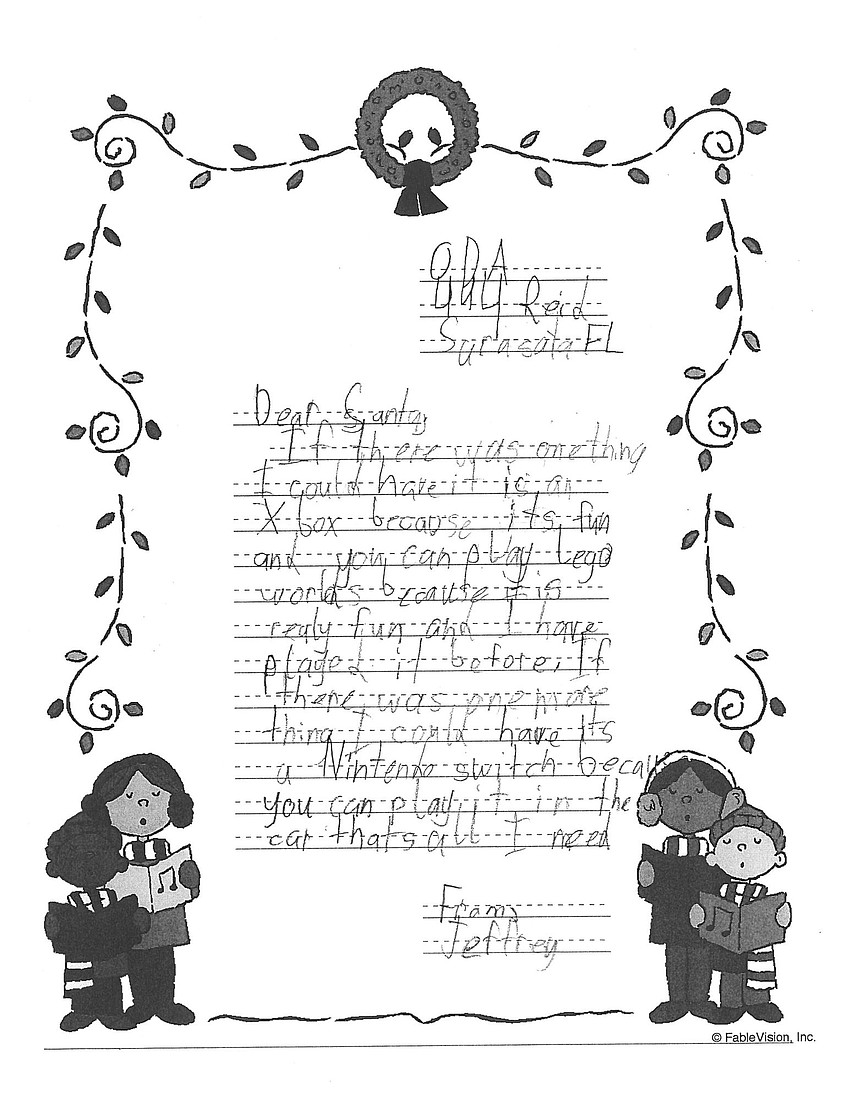 ODA
444 Reid
Surasata FL
Dear Santa,
If there was onething
I could have it is an
X box because its fun
and you can play Lego
worlds bcause it is
realy fun and I have
played it before, If
there was one more
thing I could have its
a Nintendo switch because
you can play it in the
car thats all I need
From,
Jeffrey
© FableVision, Inc.